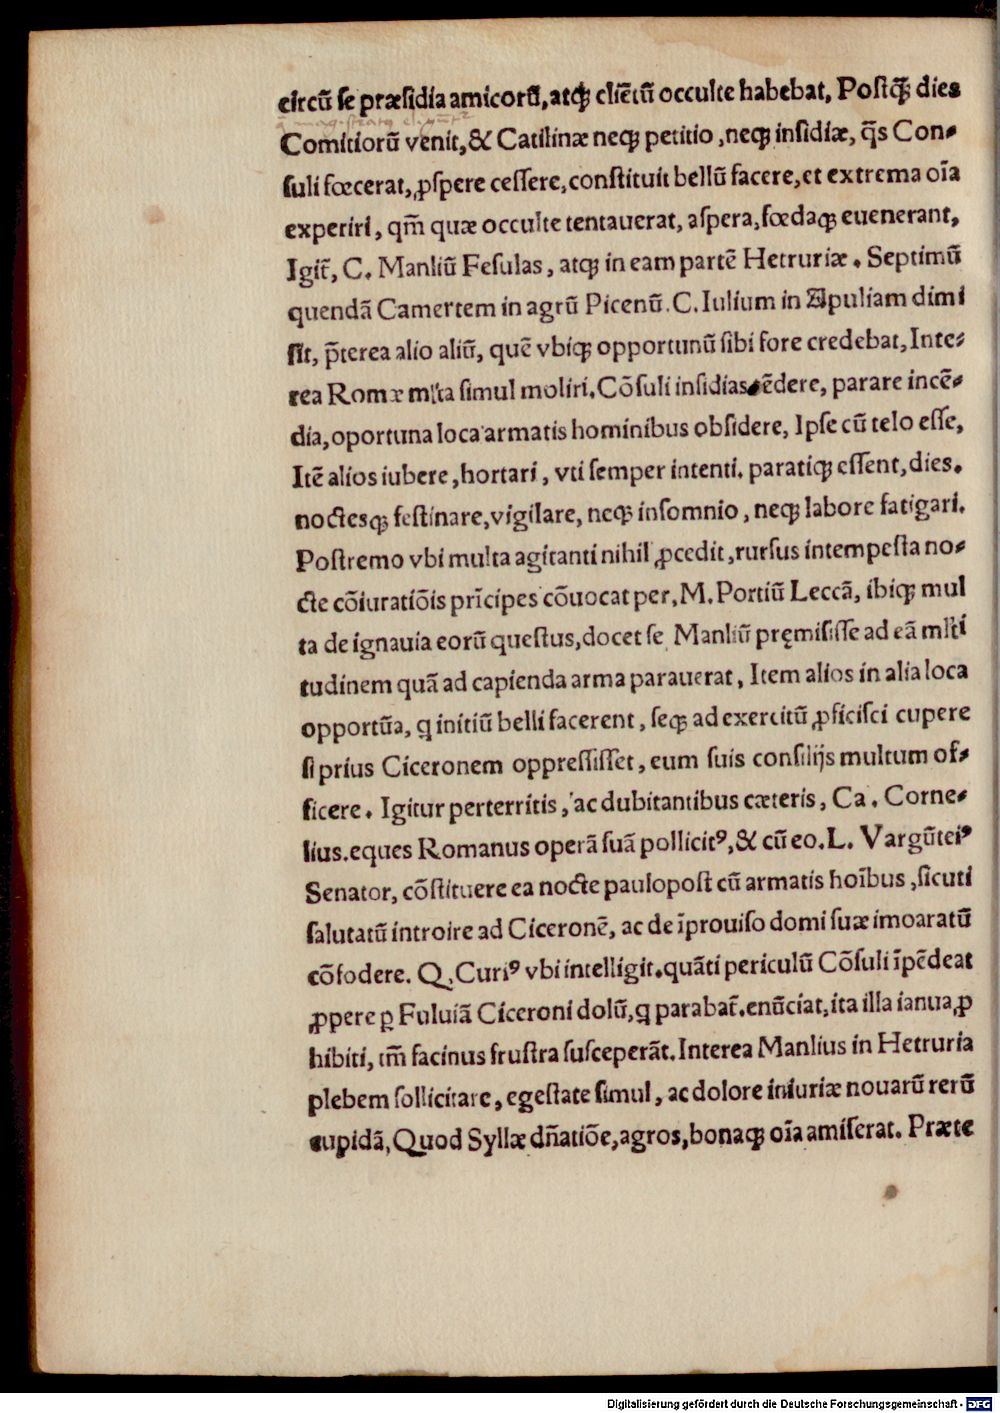 circū se præsidia amicorū, atq; cliētū occulte habebat, Postq̃ dies
Comitiorū venit, & Catilinæ neq; petitio, neq; insidiæ, q̄s Con-
suli fœcerat, ꝓspere cessere, constituit bellū facere, et extrema oīa
experiri, qm̄ quæ occulte tentauerat, aspera, fœdaq; euenerant,
Igit̄, C. Manliū Fesulas, atq; in eam partē Hetruriæ. Septimū
quendā Camertem in agrū Picenū. C. Iulium in Apuliam dimi
sit, p̄terea alio aliū, quē vbiq; opportunū sibi fore credebat, Inte-
rea Romæ ml̄ta simul moliri. Cōsuli insidias tēdere, parare incē-
dia, oportuna loca armatis hominibus obsidere, Ipse cū telo esse,
Itē alios iubere, hortari, vti semper intenti. paratiq; essent, dies.
noctesq; festinare, vigilare, neq; insomnio, neq; labore fatigari.
Postremo vbi multa agitanti nihil ꝓcedit, rursus intempesta no-
cte cōiuratiōis prīcipes cōuocat per, M. Portiū Leccā, ibiq; mul
ta de ignauia eorū questus, docet se Manliū pręmisisse ad eā ml̄ti
tudinem quā ad capienda arma parauerat, Item alios in alia loca
opportūa, q initiū belli facerent, seq; ad exercitū ꝓficisci cupere
si prius Ciceronem oppressisset, eum suis consilijs multum of-
ficere. Igitur perterritis, ac dubitantibus cæteris, Ca. Corne-
lius. eques Romanus operā suā pollicitꝰ, & cū eo. L. Vargūteiꝰ
Senator, cōstituere ea nocte paulopost cū armatis hoībus, sicuti
salutatū introire ad Ciceronē, ac de īprouiso domi suæ imoaratū
cōfodere. Q. Curiꝰ vbi intelligit. quāti periculū Cōsuli īpēdeat
ꝓpere ꝑ Fuluiā Ciceroni dolū, q parabat̄. enūciat, ita illa ianua, ꝓ
hibiti, tm̄ facinus frustra susceperāt. Interea Manlius in Hetruria
plebem sollicitare, egestate simul, ac dolore iniuriæ nouarū rerū
cupidā, Quod Syllæ dn̄atiōe, agros, bonaq; oīa amiserat. Præte
Digitalisierung gefördert durch die Deutsche Forschungsgemeinschaft - DFG